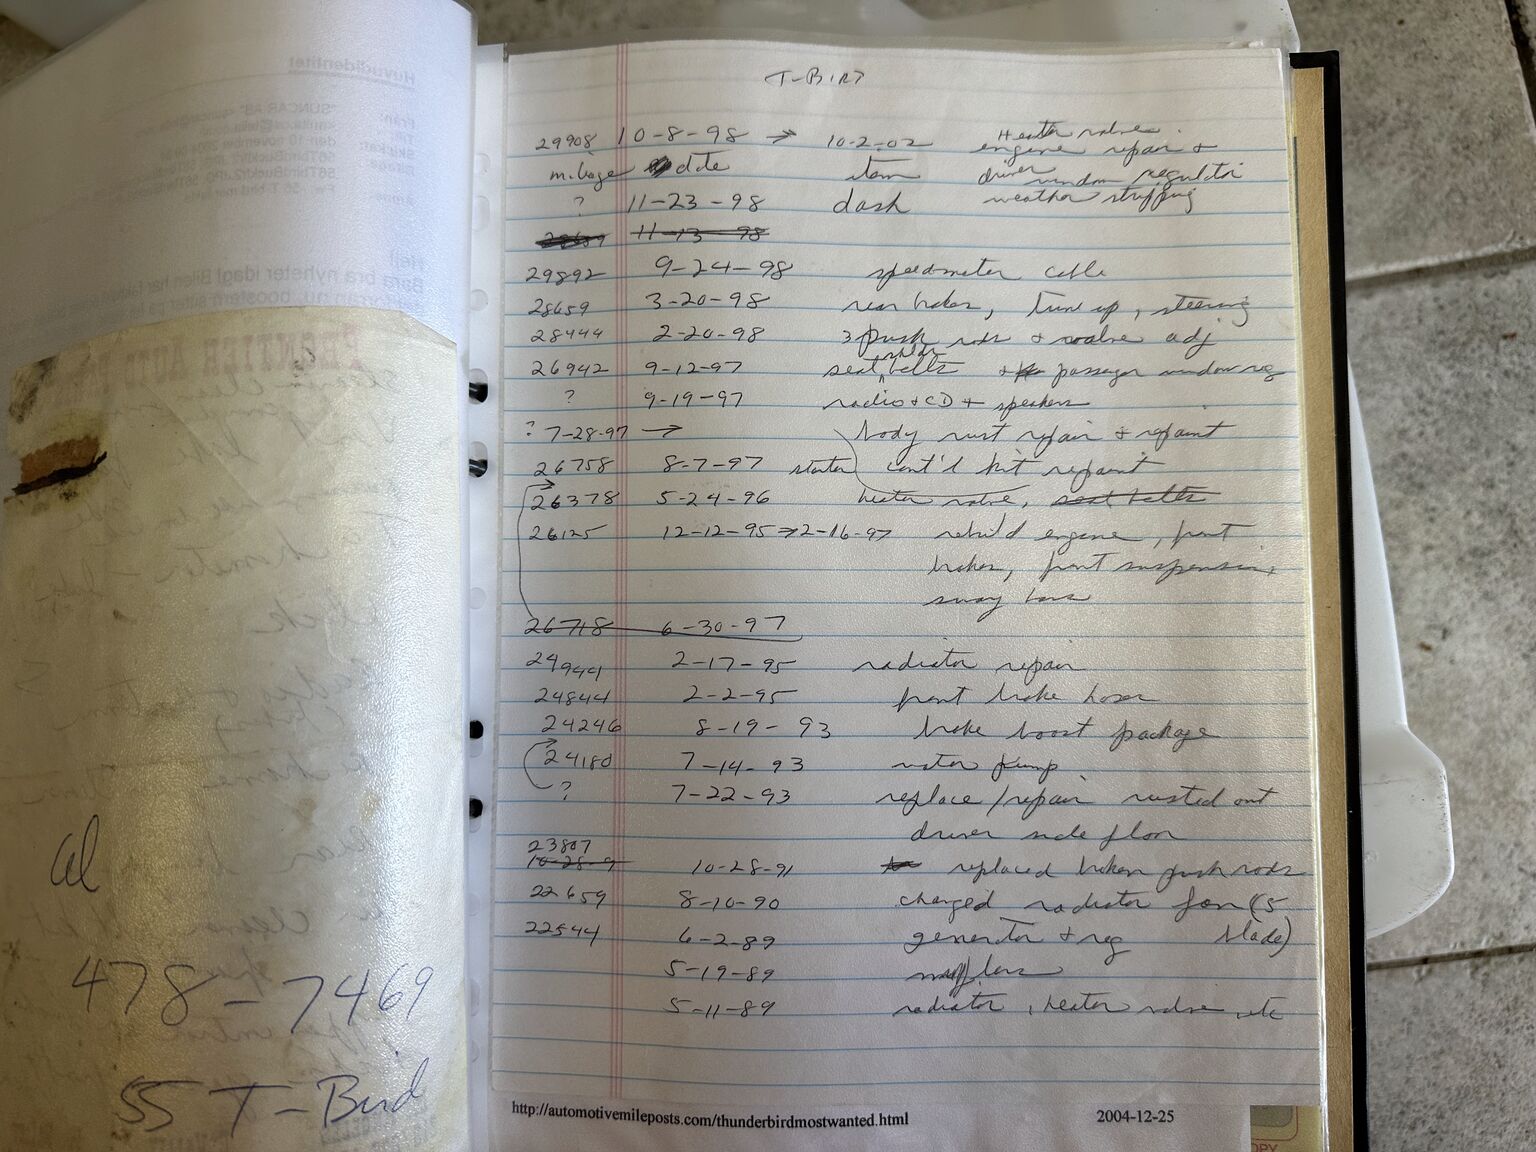 T-BIRD
Heater valve
29908 10-8-98 → 10-2-02 engine repair +
mileage date item driver window regulator
? 11-23-98 dash weather stripping
11-13-98
29892 9-24-98 speedmeter cable
28659 3-20-98 rear brakes, tune up, steering
28444 2-20-98 3 push rods + valve adj
26942 9-12-97 seat belts + passenger window reg
? 9-19-97 radio + CD + speakers
? 7-28-97 → body rust repair + repaint
26758 8-7-97 starter cont'l kit repaint
26378 5-24-96 heater valve, seat belts
26125 12-12-95 → 2-16-97 rebuild engine, front
brakes, front suspension,
sway bars
26718 6-30-97
24944 2-17-95 radiator repair
24844 2-2-95 front brake hoses
24246 8-19-93 brake boost package
24180 7-14-93 water pump
? 7-22-93 replace/repair rusted out
driver side floor
23807
10-28-9 10-28-91 replaced broken push rods
22659 8-10-90 changed radiator fan (5
22544 6-2-89 generator + reg blade)
5-19-89 mufflers
5-11-89 radiator, heater valve, etc
http://automotivemileposts.com/thunderbirdmostwanted.html 2004-12-25
al
478-7469
55 T-Bird